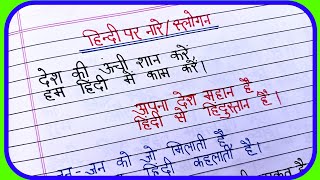 हिन्दी पर नारे/स्लोगन
देश की ऊँची शान करें
हम हिंदी में काम करें।
अपना देश महान है
हिंदी से हिंदुस्तान है।
जन-जन को जो मिलाती है
हिंदी कहलाती है।